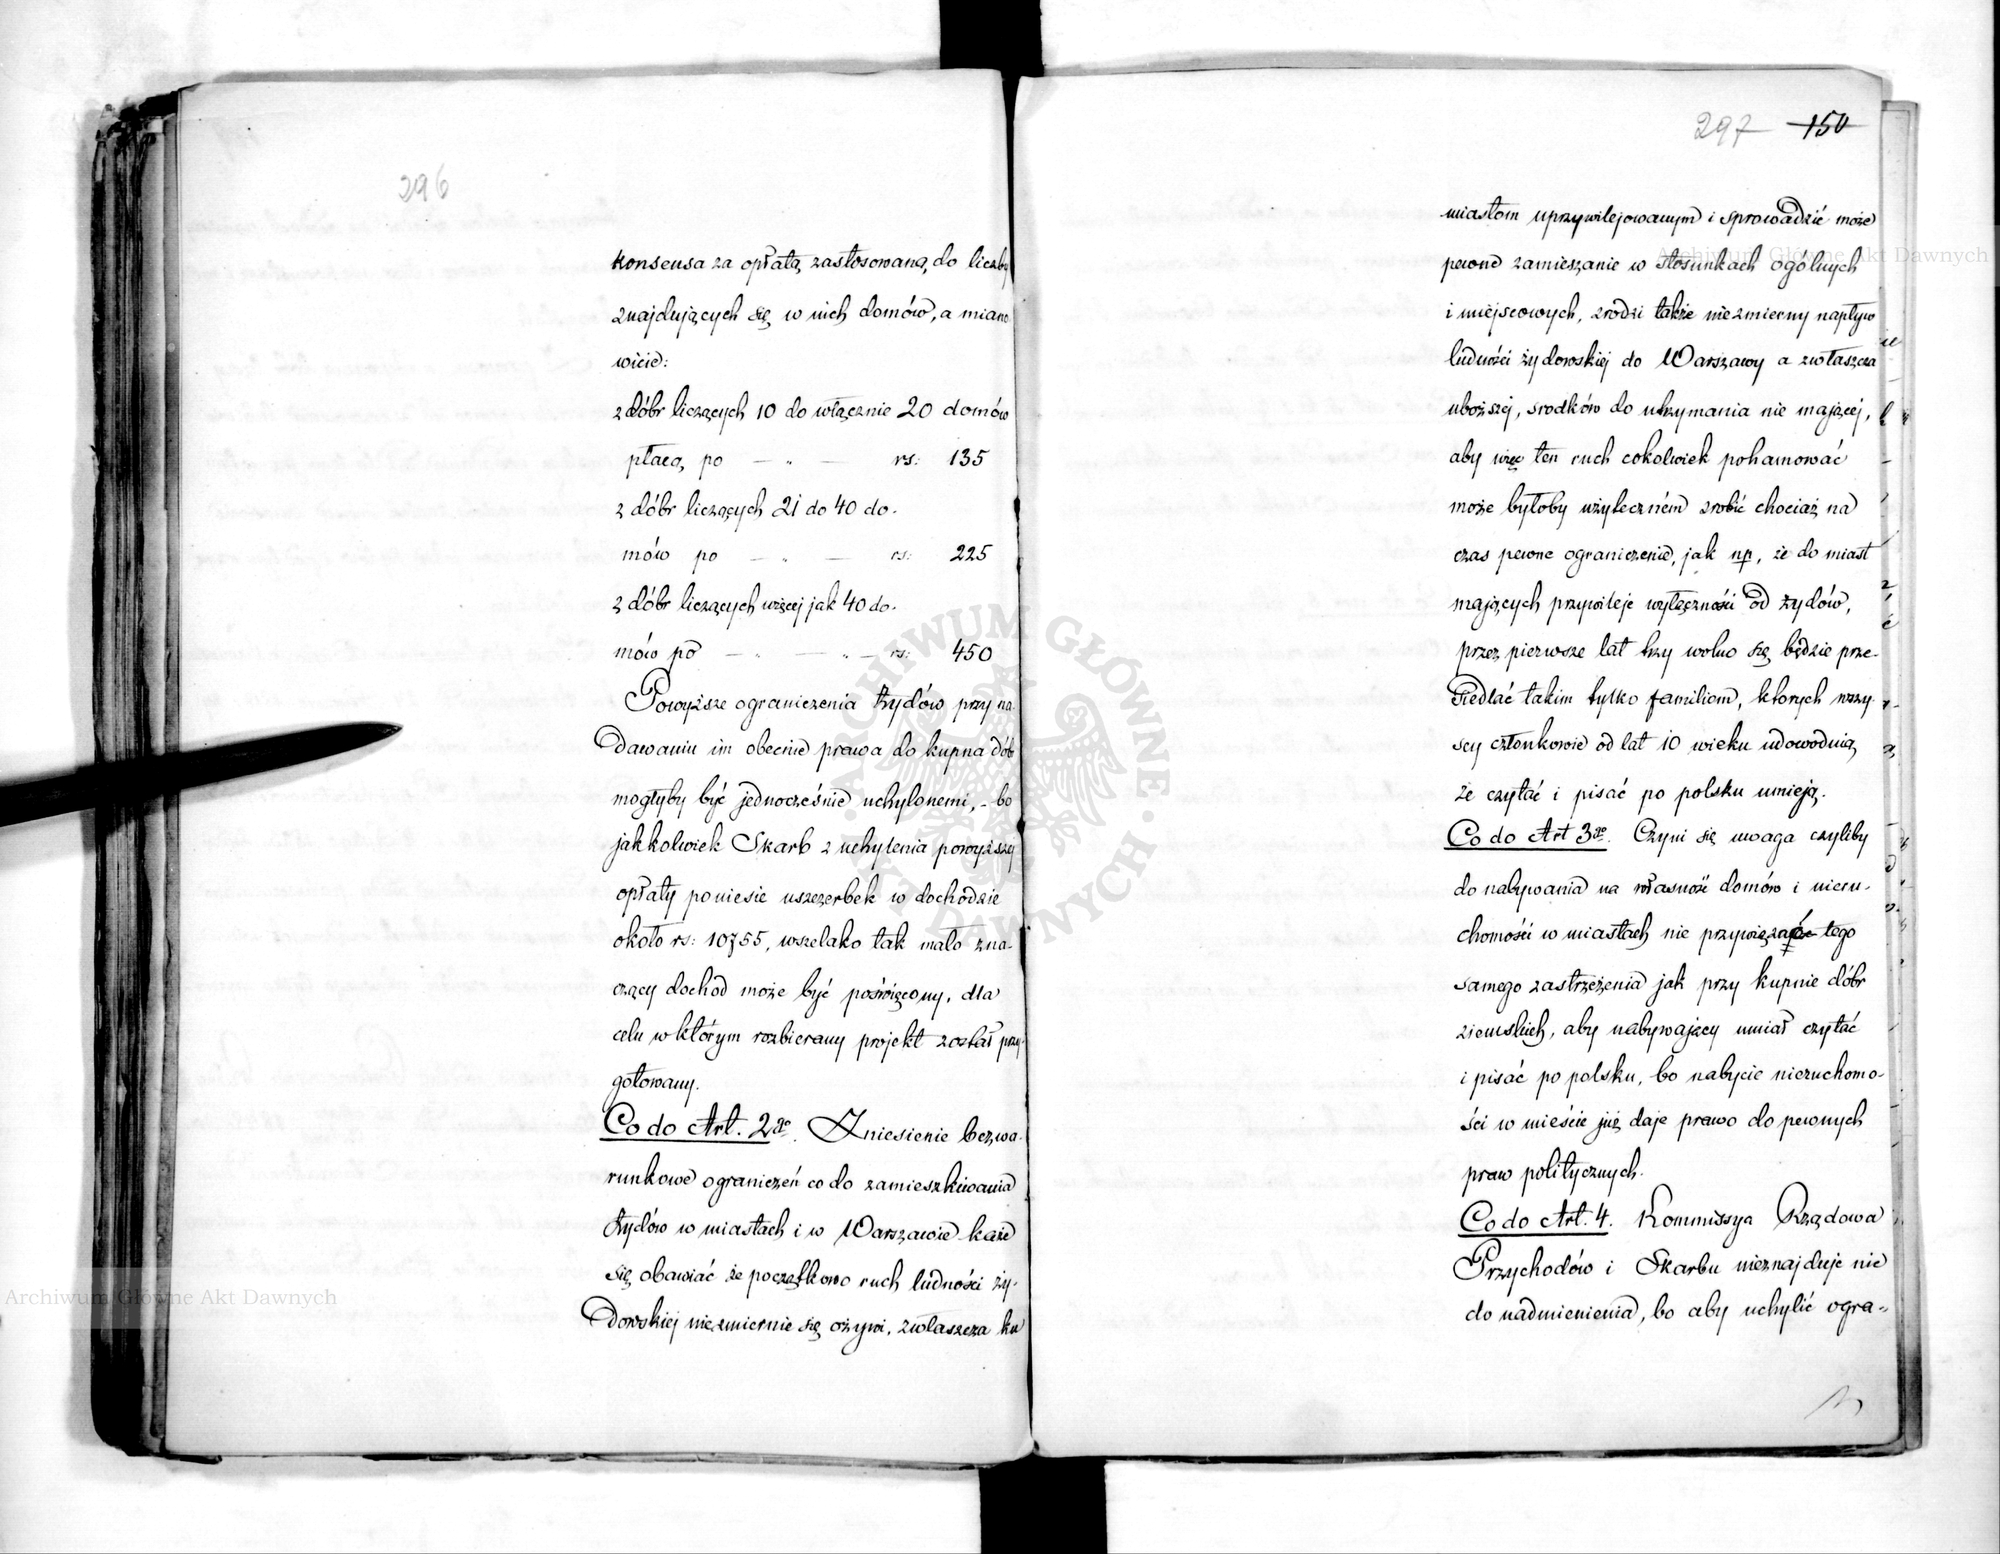 296
konsensa za opłatą zastosowaną do liczby
znajdujących się w nich domów, a miano
wicie:
z dóbr liczących 10 do włącznie 20 domów
płacą po — „ — rs: 135
z dóbr liczących 21 do 40 do-
mów po — „ — rs: 225
z dóbr liczących więcej jak 40 do-
mów po — „ — „ — rs: 450
Powyższe ograniczenia Żydów przy na-
dawaniu im obecnie prawa do kupna dób
mogłyby być jednocześnie uchylonemi, - bo
jakkolwiek Skarb z uchylenia powyższej
opłaty poniesie uszczerbek w dochodzie
około rs: 10755, wszelako tak mało zna-
czący dochod może być poświęcony, dla
celu w którym rozbierany projekt został przy-
gotowany.
Co do Art. 2go. Zniesienie bezwa-
runkowe ograniczeń co do zamieszkiwania
Żydów w miastach i w Warszawie każe
się obawiać że początkowo ruch ludności ży-
dowskiej niezmiernie się ożywi, zwłaszcza ku
297 150
miastom uprzywilejowanym i sprowadzić może
pewne zamieszanie w stosunkach ogólnych
i miejscowych, zrodzi także niezmierny napływ
ludności żydowskiej do Warszawy a zwłaszcza
uboższej, srodków do utrzymania nie mającej,
aby więc ten ruch cokolwiek pohamować
może byłoby użyteczném zrobić chociaż na
czas pewne ograniczenie, jak np, że do miast
mających przywileje wyłączności od żydów,
przez pierwsze lat trzy wolno się będzie prze-
siedlać takim tylko familiom, ktorych wszy-
scy członkowie od lat 10 wieku udowodnią,
że czytać i pisać po polsku umieją.
Co do Art 3go. Czyni się uwaga czyliby
do nabywania na własność domów i nieru-
chomości w miastach nie przywiązać tego
samego zastrzeżenia jak przy kupnie dóbr
ziemskich, aby nabywający umiał czytać
i pisać po polsku, bo nabycie nieruchomo-
ści w mieście już daje prawo do pewnych
praw politycznych.
Co do Art. 4. Kommissya Rządowa
Przychodów i Skarbu nieznajduje nic
do nadmienienia, bo aby uchylić ogra-
ARCHIWUM GŁÓWNE AKT DAWNYCH
Archiwum Główne Akt Dawnych
Archiwum Główne Akt Dawnych